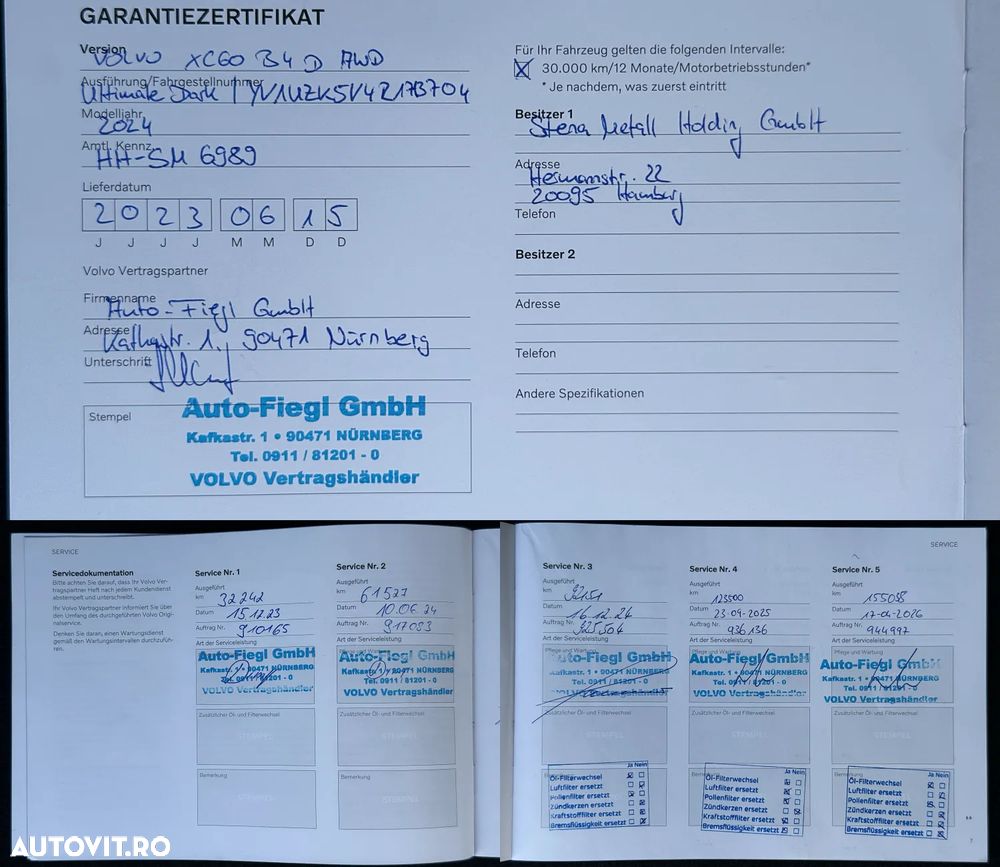 GARANTIEZERTIFIKAT
Version
VOLVO XC60 B4 D AWD
Ausführung/Fahrgestellnummer
Ultimate Dark / YV1UZK5V4R1783704
Modelljahr
2024
Amtl. Kennz.
HH-SM 6989
Lieferdatum
2023 06 15
J J J J M M D D
Volvo Vertragspartner
Firmenname
Auto-Fiegl GmbH
Adresse
Kafkastr. 1, 90471 Nürnberg
Unterschrift
Stempel
Auto-Fiegl GmbH
Kafkastr. 1 • 90471 NÜRNBERG
Tel. 0911 / 81201 - 0
VOLVO Vertragshändler
Für Ihr Fahrzeug gelten die folgenden Intervalle:
30.000 km/12 Monate/Motorbetriebsstunden*
* Je nachdem, was zuerst eintritt
Besitzer 1
Stena Metall Holding GmbH
Adresse
Hermannstr. 22
20095 Hamburg
Telefon
Besitzer 2
Adresse
Telefon
Andere Spezifikationen
SERVICE
Servicedokumentation
Bitte achten Sie darauf, dass Ihr Volvo Ver-
tragspartner Heft nach jedem Kundendienst
abstempelt und unterschreibt.
Ihr Volvo Vertragspartner informiert Sie über
den Umfang des durchgeführten Volvo Origi-
nalservice.
Denken Sie daran, einen Wartungsdienst
gemäß den Wartungsintervallen durchzufüh-
ren.
Service Nr. 1
Ausgeführt
km 32242
Datum 15.12.23
Auftrag Nr. 910165
Art der Serviceleistung
Auto-Fiegl GmbH
Kafkastr. 1 • 90471 NÜRNBERG
Tel. 0911 / 81201 - 0
VOLVO Vertragshändler
Zusätzlicher Öl- und Filterwechsel
STEMPEL
Bemerkung
Service Nr. 2
Ausgeführt
km 61527
Datum 10.06.24
Auftrag Nr. 917083
Art der Serviceleistung
Auto-Fiegl GmbH
Kafkastr. 1 • 90471 NÜRNBERG
Tel. 0911 / 81201 - 0
VOLVO Vertragshändler
Zusätzlicher Öl- und Filterwechsel
STEMPEL
Bemerkung
SERVICE
Service Nr. 3
Ausgeführt
km
Datum 16.12.24
Auftrag Nr. 925504
Art der Serviceleistung
Pflege und Wartung
Auto-Fiegl GmbH
Kafkastr. 1 • 90471 NÜRNBERG
Tel. 0911 / 81201 - 0
VOLVO Vertragshändler
Zusätzlicher Öl- und Filterwechsel
Ja Nein
Öl-Filterwechsel
Luftfilter ersetzt
Pollenfilter ersetzt
Zündkerzen ersetzt
Kraftstofffilter ersetzt
Bremsflüssigkeit ersetzt
Service Nr. 4
Ausgeführt
km 123500
Datum 23-09-2025
Auftrag Nr. 936136
Art der Serviceleistung
Pflege und Wartung
Auto-Fiegl GmbH
Kafkastr. 1 • 90471 NÜRNBERG
Tel. 0911 / 81201 - 0
VOLVO Vertragshändler
Zusätzlicher Öl- und Filterwechsel
STEMPEL
Ja Nein
Öl-Filterwechsel
Luftfilter ersetzt
Pollenfilter ersetzt
Zündkerzen ersetzt
Kraftstofffilter ersetzt
Bremsflüssigkeit ersetzt
Service Nr. 5
Ausgeführt
km 155058
Datum 17-04-2026
Auftrag Nr. 944997
Art der Serviceleistung
Pflege und Wartung
Auto-Fiegl GmbH
Kafkastr. 1 • 90471 NÜRNBERG
Tel. 0911 / 81201 - 0
VOLVO Vertragshändler
Zusätzlicher Öl- und Filterwechsel
STEMPEL
Ja Nein
Öl-Filterwechsel
Luftfilter ersetzt
Pollenfilter ersetzt
Zündkerzen ersetzt
Kraftstofffilter ersetzt
Bremsflüssigkeit ersetzt
7
AUTOVIT.RO